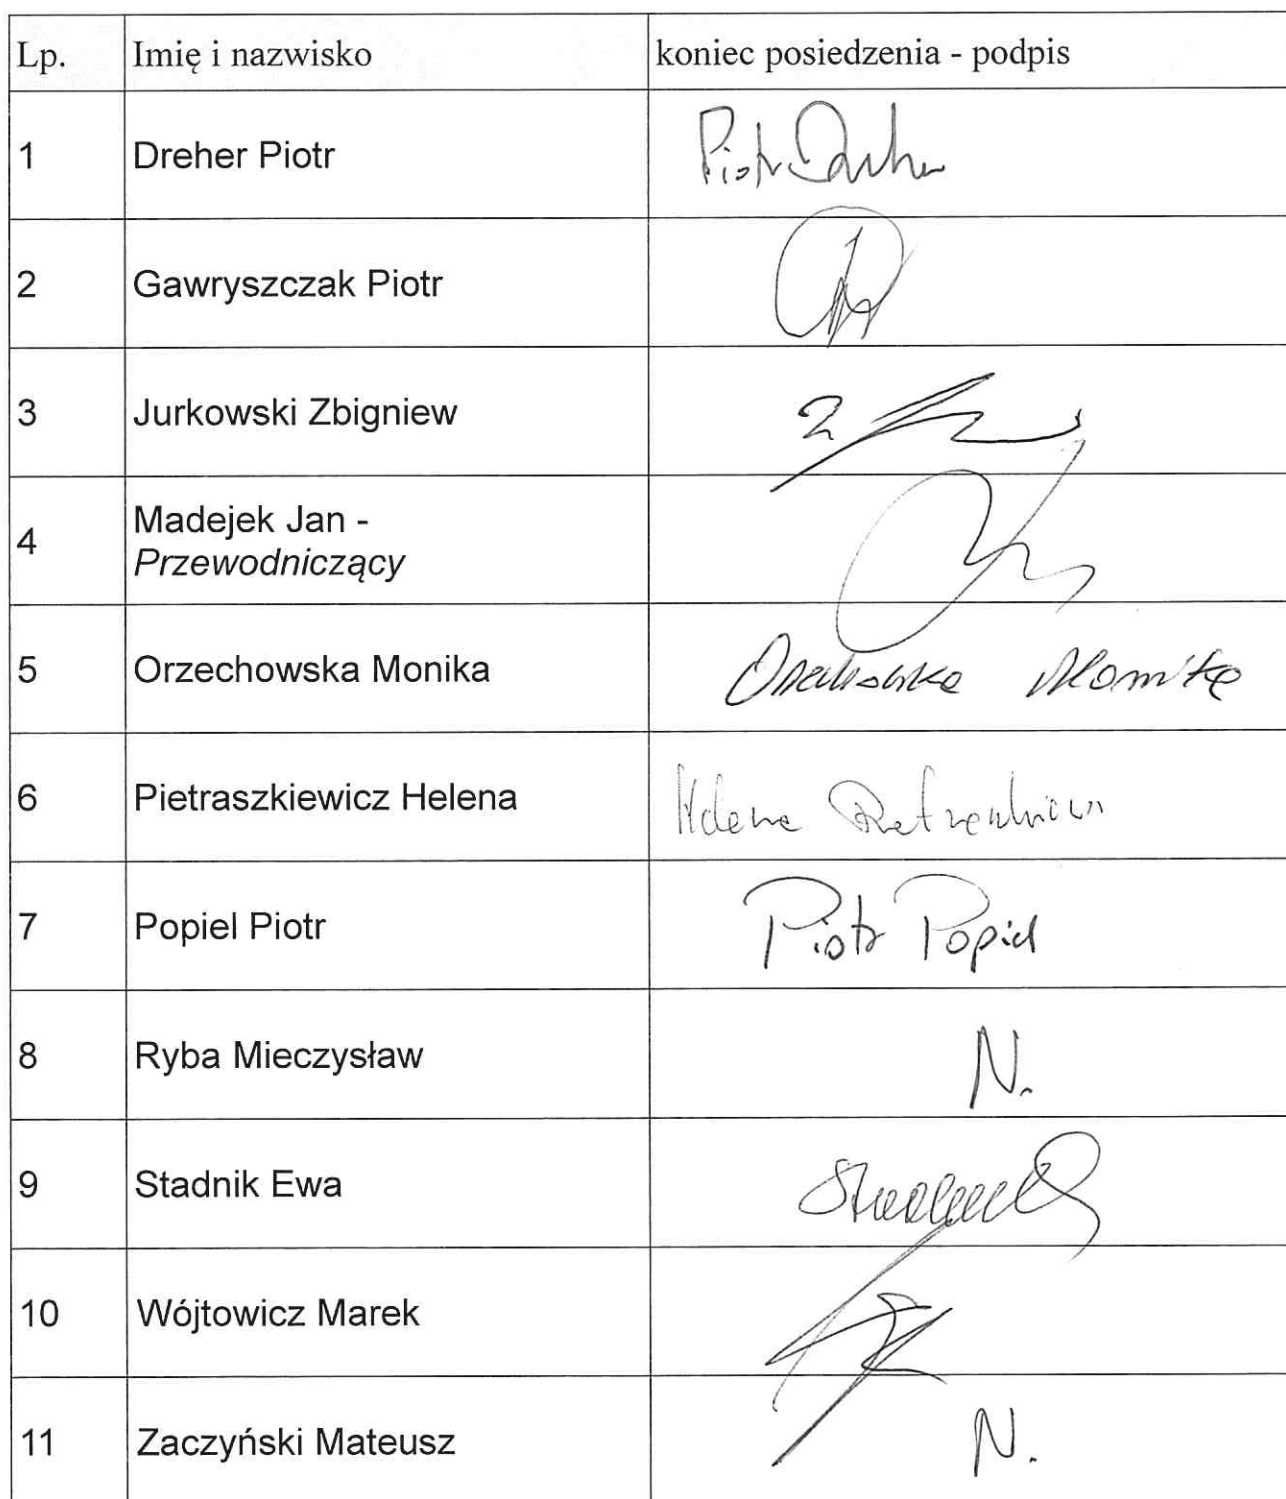 Lp. Imię i nazwisko koniec posiedzenia - podpis
1 Dreher Piotr Piotr Dreher
2 Gawryszczak Piotr
3 Jurkowski Zbigniew
4 Madejek Jan -
Przewodniczący
5 Orzechowska Monika Orzechowska Monika
6 Pietraszkiewicz Helena Helena Pietraszkiewicz
7 Popiel Piotr Piotr Popiel
8 Ryba Mieczysław N.
9 Stadnik Ewa
10 Wójtowicz Marek
11 Zaczyński Mateusz N.